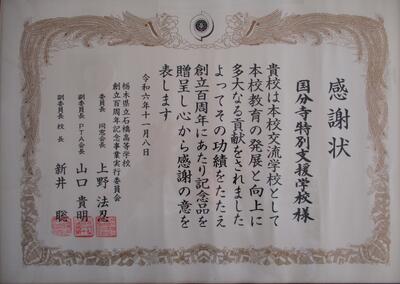 感謝状
国分寺特別支援学校様
貴校は本校交流学校として
本校教育の発展と向上に
多大なる貢献をされました
よってその功績をたたえ
創立百周年にあたり記念品を
贈呈し心から感謝の意を
表します
令和六年十一月八日
栃木県立石橋高等学校
創立百周年記念事業実行委員会
委員長 同窓会長 上野法忍
副委員長 PTA会長 山口貴明
副委員長 校長 新井聡